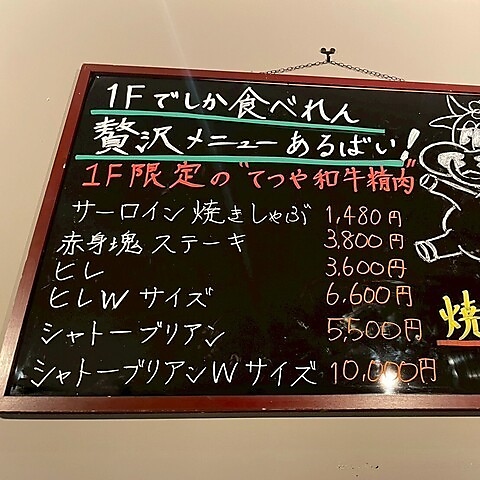 1Fでしか食べれん
贅沢メニューあるばい!
1F限定の"てつや和牛精肉"
サーロイン焼きしゃぶ 1,480円
赤身塊ステーキ 3,800円
ヒレ 3,600円
ヒレWサイズ 6,600円
シャトーブリアン 5,500円
シャトーブリアンWサイズ 10,000円
焼